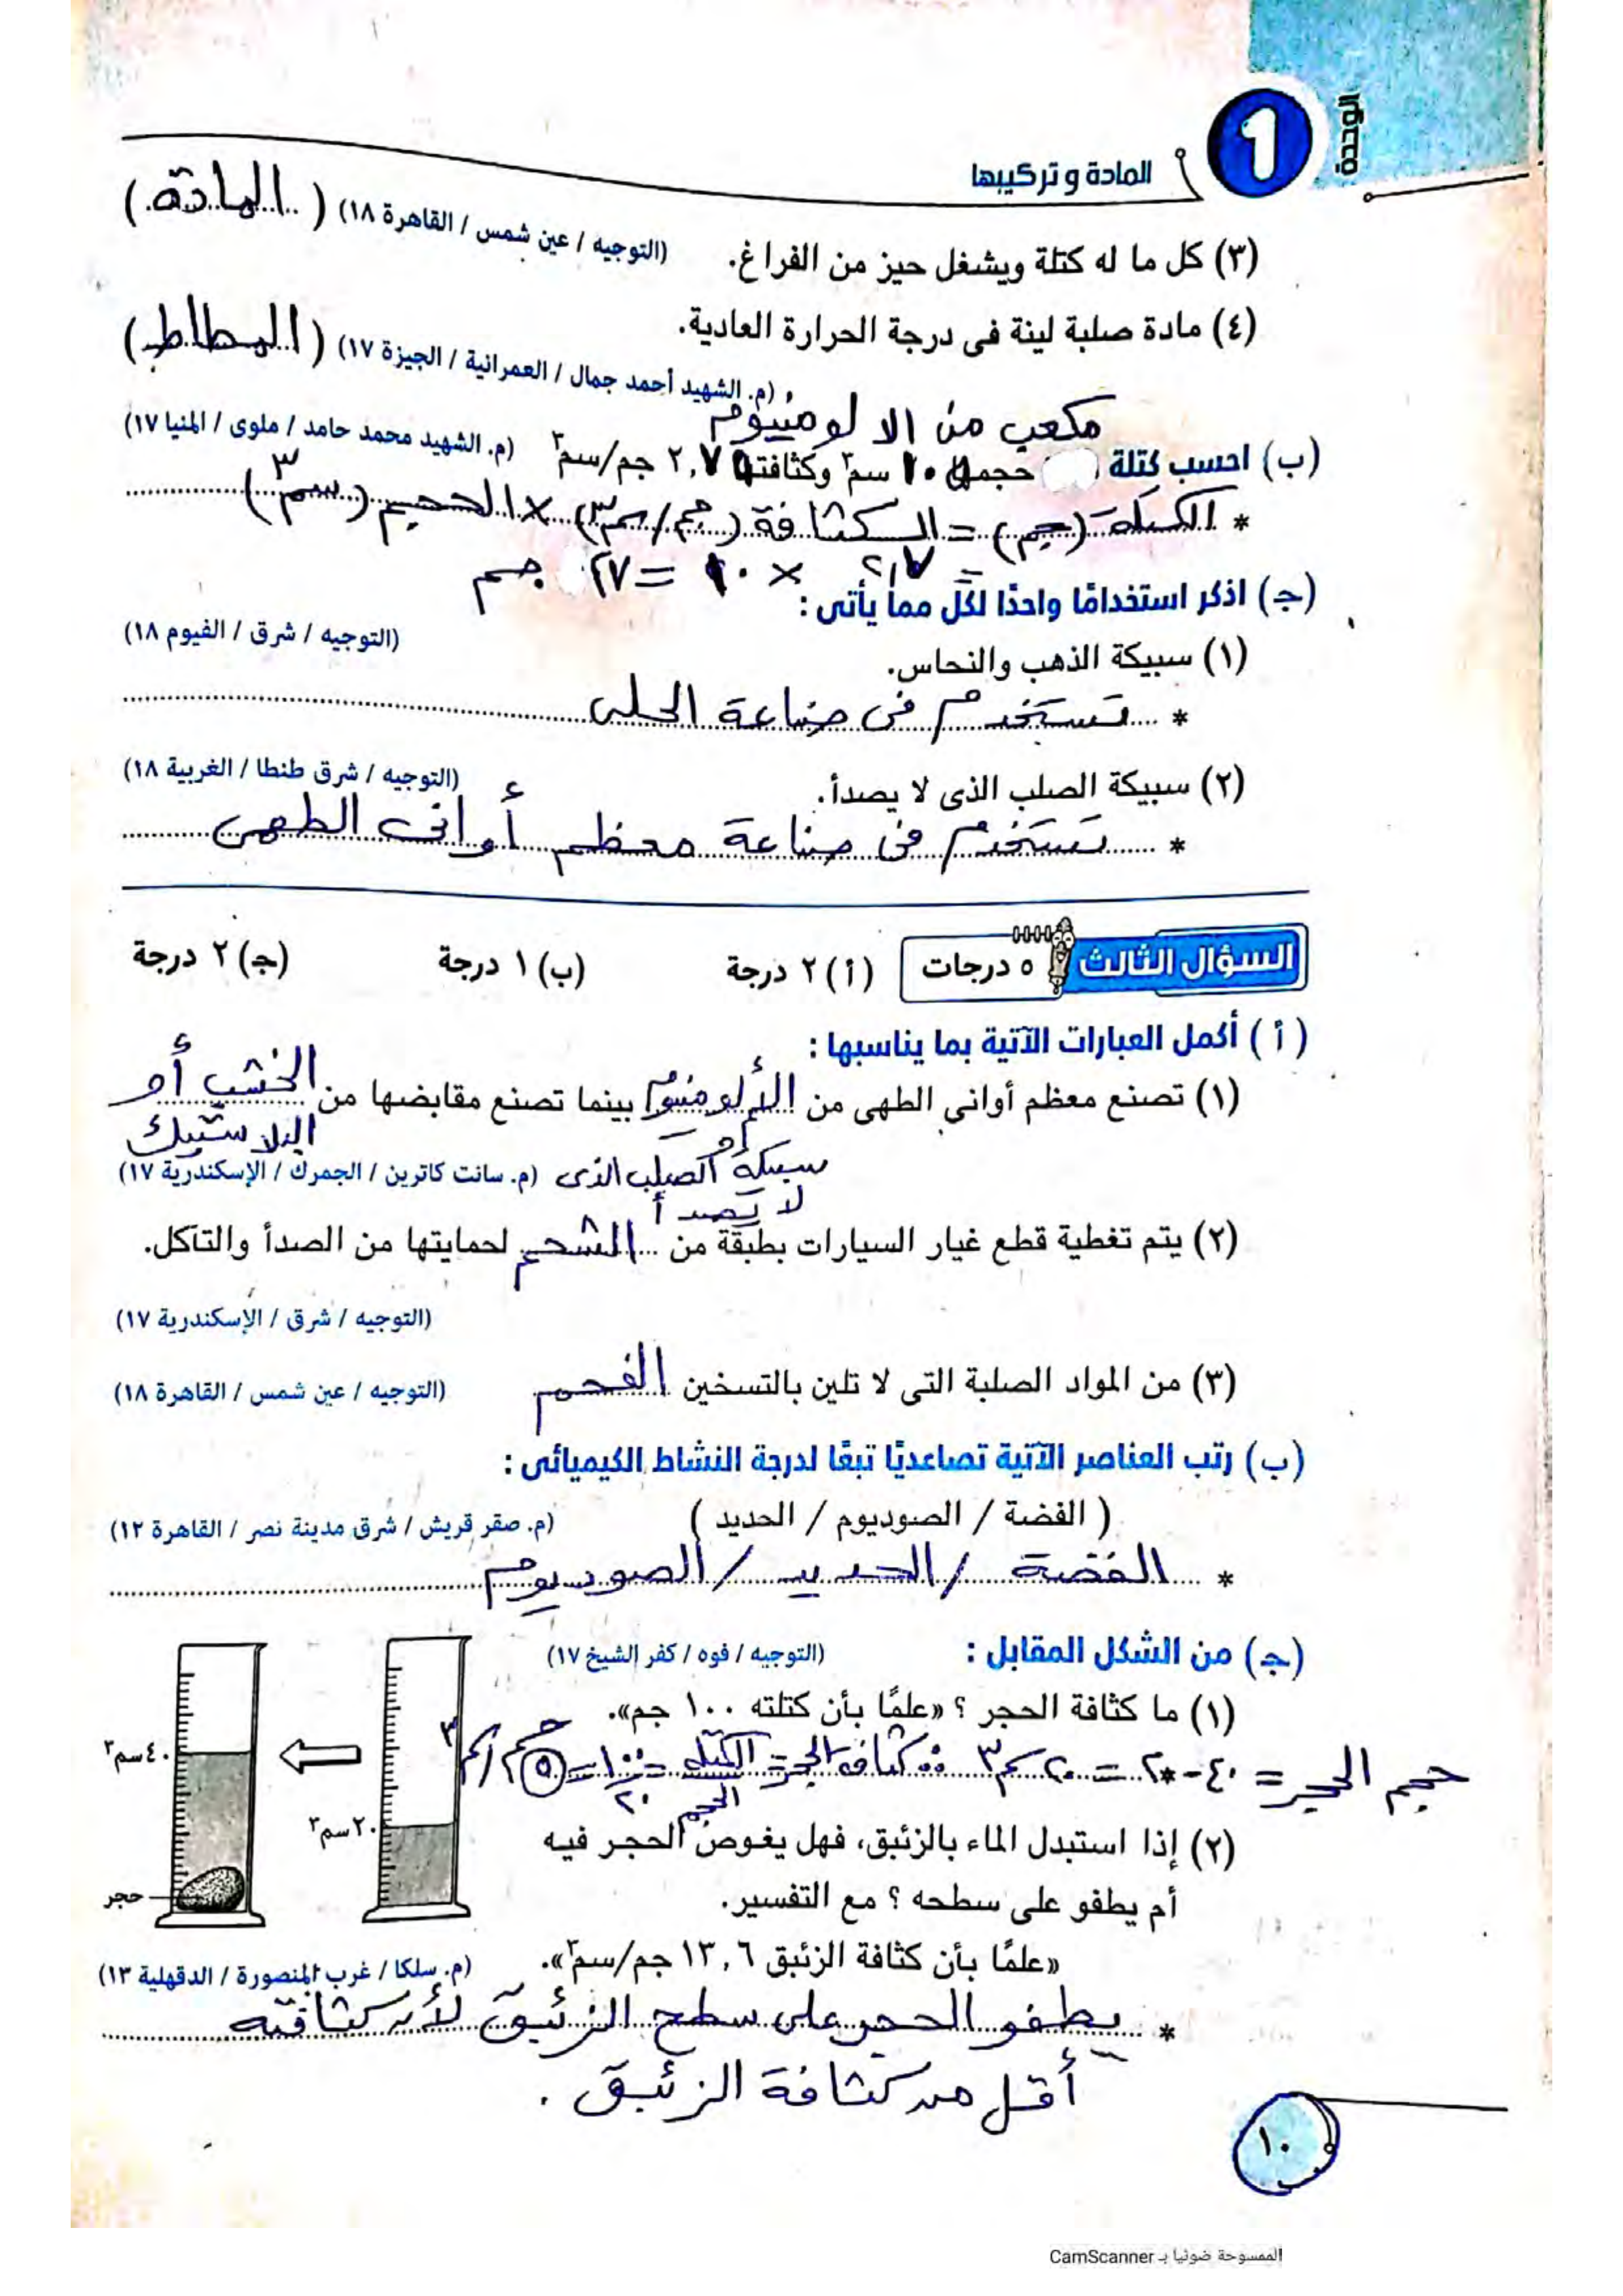 الوحدة
1
المادة وتركيبها
(٣) كل ما له كتلة ويشغل حيز من الفراغ. (التوجيه / عين شمس / القاهرة ١٨) (المادة)
(٤) مادة صلبة لينة فى درجة الحرارة العادية.
(م. الشهيد أحمد جمال / العمرانية / الجيزة ١٧) (المطاط)
مكعب من الالومنيوم
(ب) احسب كتلة حجمها ١٠ سم٣ وكثافتها ٢,٧ جم/سم٣ (م. الشهيد محمد حامد / ملوى / المنيا ١٧)
* الكتلة (جم) = الكثافة (جم/سم٣) × الحجم (سم٣)
= ٢,٧ × ١٠ = ٢٧ جم
(جـ) اذكر استخدامًا واحدًا لكل مما يأتى :
(١) سبيكة الذهب والنحاس. (التوجيه / شرق / الفيوم ١٨)
* تستخدم فى صناعة الحلى
(٢) سبيكة الصلب الذى لا يصدأ. (التوجيه / شرق طنطا / الغربية ١٨)
* تستخدم فى صناعة معظم أوانى الطهى
السؤال الثالث ٥ درجات (أ) ٢ درجة (ب) ١ درجة (جـ) ٢ درجة
(أ) أكمل العبارات الآتية بما يناسبها :
(١) تصنع معظم أوانى الطهى من الألومنيوم بينما تصنع مقابضها من الخشب أو
أو البلاستيك
سبيكة الصلب الذى (م. سانت كاترين / الجمرك / الإسكندرية ١٧)
لا يصدأ
(٢) يتم تغطية قطع غيار السيارات بطبقة من الشحم لحمايتها من الصدأ والتآكل.
(التوجيه / شرق / الإسكندرية ١٧)
(٣) من المواد الصلبة التى لا تلين بالتسخين الفحم (التوجيه / عين شمس / القاهرة ١٨)
(ب) رتب العناصر الآتية تصاعديًا تبعًا لدرجة النشاط الكيميائى :
( الفضة / الصوديوم / الحديد ) (م. صقر قريش / شرق مدينة نصر / القاهرة ١٢)
* الفضة / الحديد / الصوديوم
(جـ) من الشكل المقابل : (التوجيه / فوه / كفر الشيخ ١٧)
(١) ما كثافة الحجر ؟ «علمًا بأن كتلته ١٠٠ جم».
حجم الحجر = ٤٠ - ٢٠ = ٢٠ سم٣ ∴ كثافة الحجر = الكتلة / الحجم = ١٠٠ / ٢٠ = ٥ جم/سم٣
٤٠ سم٣
٢٠ سم٣
حجر
(٢) إذا استبدل الماء بالزئبق، فهل يغوص الحجر فيه
أم يطفو على سطحه ؟ مع التفسير.
«علمًا بأن كثافة الزئبق ١٣,٦ جم/سم٣». (م. سلكا / غرب المنصورة / الدقهلية ١٣)
* يطفو الحجر على سطح الزئبق لأن كثافته
أقل من كثافة الزئبق .
١٠
الممسوحة ضوئيا بـ CamScanner